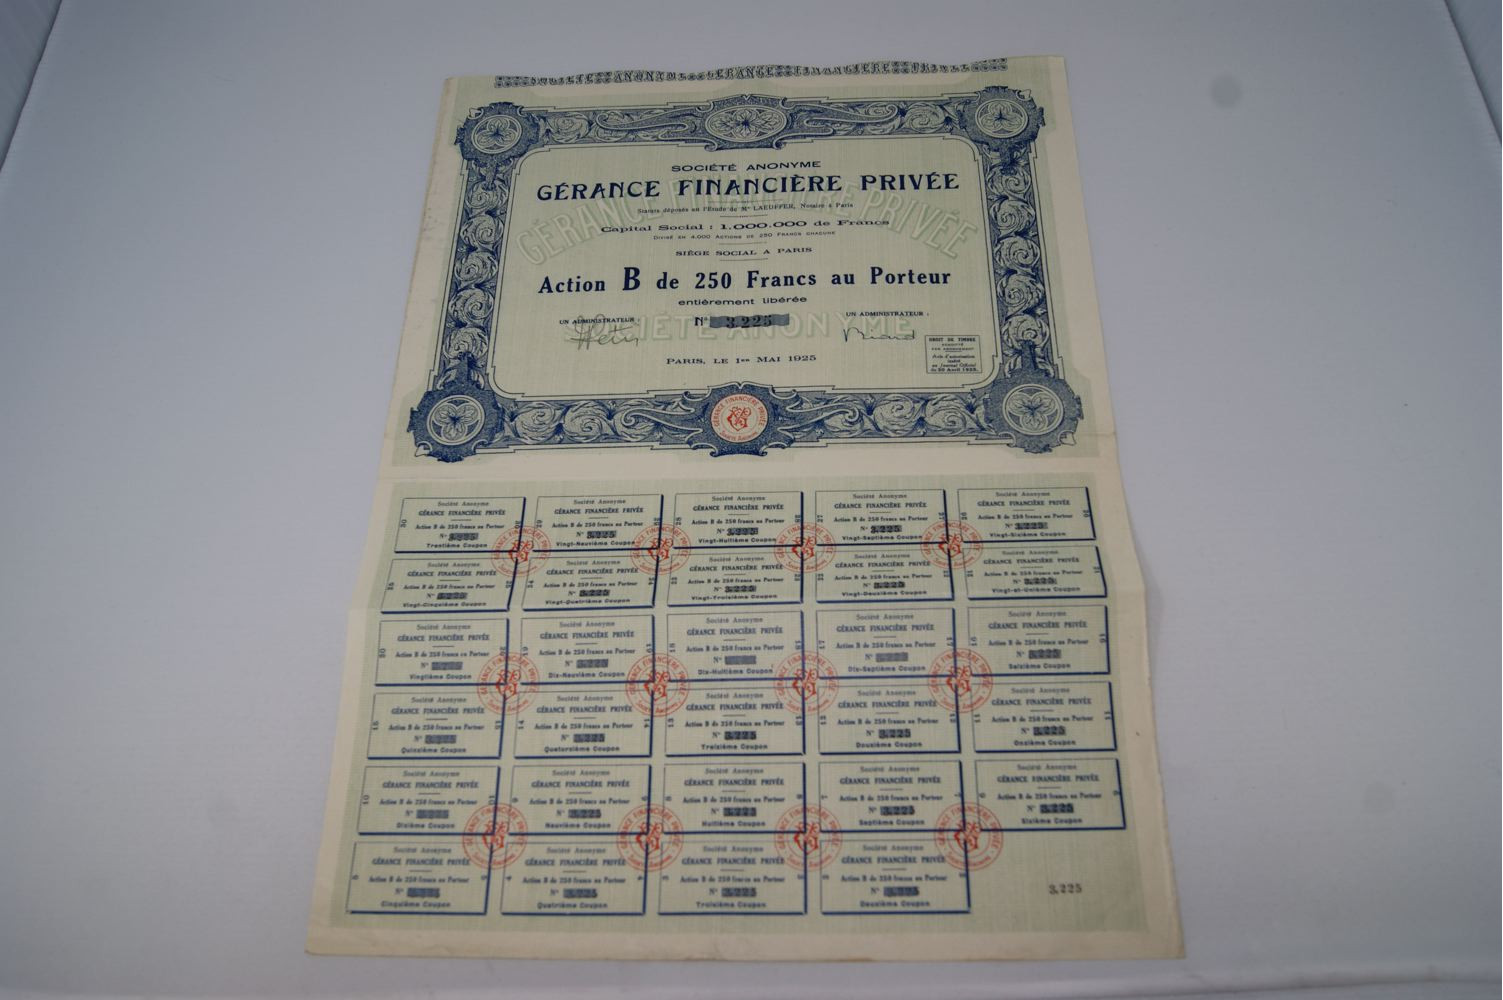 SOCIÉTÉ ANONYME GÉRANCE FINANCIÈRE PRIVÉE
SOCIÉTÉ ANONYME
GÉRANCE FINANCIÈRE PRIVÉE
Statuts déposés en l'Etude de Me LAEUFFER, Notaire à Paris
Capital Social : 1.000.000 de Francs
DIVISÉ EN 4.000 ACTIONS DE 250 FRANCS CHACUNE
SIÈGE SOCIAL A PARIS
Action B de 250 Francs au Porteur
entièrement libérée
UN ADMINISTRATEUR :
N° 3.225
UN ADMINISTRATEUR :
GÉRANCE FINANCIÈRE PRIVÉE
SOCIÉTÉ ANONYME
PARIS, LE 1er MAI 1925
DROIT DE TIMBRE
ACQUITTÉ
PAR ABONNEMENT
Avis d'autorisation
inséré
au Journal Officiel
du 30 Avril 1925.
GÉRANCE FINANCIÈRE PRIVÉE
Société Anonyme
30
Société Anonyme
GÉRANCE FINANCIÈRE PRIVÉE
Action B de 250 francs au Porteur
N° 3.225
Trentième Coupon
29
Société Anonyme
GÉRANCE FINANCIÈRE PRIVÉE
Action B de 250 francs au Porteur
N° 3.225
Vingt-Neuvième Coupon
28
Société Anonyme
GÉRANCE FINANCIÈRE PRIVÉE
Action B de 250 francs au Porteur
N° 3.225
Vingt-Huitième Coupon
27
Société Anonyme
GÉRANCE FINANCIÈRE PRIVÉE
Action B de 250 francs au Porteur
N° 3.225
Vingt-Septième Coupon
26
Société Anonyme
GÉRANCE FINANCIÈRE PRIVÉE
Action B de 250 francs au Porteur
N° 3.225
Vingt-Sixième Coupon
25
Société Anonyme
GÉRANCE FINANCIÈRE PRIVÉE
Action B de 250 francs au Porteur
N° 3.225
Vingt-Cinquième Coupon
24
Société Anonyme
GÉRANCE FINANCIÈRE PRIVÉE
Action B de 250 francs au Porteur
N° 3.225
Vingt-Quatrième Coupon
23
Société Anonyme
GÉRANCE FINANCIÈRE PRIVÉE
Action B de 250 francs au Porteur
N° 3.225
Vingt-Troisième Coupon
22
Société Anonyme
GÉRANCE FINANCIÈRE PRIVÉE
Action B de 250 francs au Porteur
N° 3.225
Vingt-Deuxième Coupon
21
Société Anonyme
GÉRANCE FINANCIÈRE PRIVÉE
Action B de 250 francs au Porteur
N° 3.225
Vingt-et-Unième Coupon
20
Société Anonyme
GÉRANCE FINANCIÈRE PRIVÉE
Action B de 250 francs au Porteur
N° 3.225
Vingtième Coupon
19
Société Anonyme
GÉRANCE FINANCIÈRE PRIVÉE
Action B de 250 francs au Porteur
N° 3.225
Dix-Neuvième Coupon
18
Société Anonyme
GÉRANCE FINANCIÈRE PRIVÉE
Action B de 250 francs au Porteur
N° 3.225
Dix-Huitième Coupon
17
Société Anonyme
GÉRANCE FINANCIÈRE PRIVÉE
Action B de 250 francs au Porteur
N° 3.225
Dix-Septième Coupon
16
Société Anonyme
GÉRANCE FINANCIÈRE PRIVÉE
Action B de 250 francs au Porteur
N° 3.225
Seizième Coupon
15
Société Anonyme
GÉRANCE FINANCIÈRE PRIVÉE
Action B de 250 francs au Porteur
N° 3.225
Quinzième Coupon
14
Société Anonyme
GÉRANCE FINANCIÈRE PRIVÉE
Action B de 250 francs au Porteur
N° 3.225
Quatorzième Coupon
13
Société Anonyme
GÉRANCE FINANCIÈRE PRIVÉE
Action B de 250 francs au Porteur
N° 3.225
Treizième Coupon
12
Société Anonyme
GÉRANCE FINANCIÈRE PRIVÉE
Action B de 250 francs au Porteur
N° 3.225
Douzième Coupon
11
Société Anonyme
GÉRANCE FINANCIÈRE PRIVÉE
Action B de 250 francs au Porteur
N° 3.225
Onzième Coupon
10
Société Anonyme
GÉRANCE FINANCIÈRE PRIVÉE
Action B de 250 francs au Porteur
N° 3.225
Dixième Coupon
9
Société Anonyme
GÉRANCE FINANCIÈRE PRIVÉE
Action B de 250 francs au Porteur
N° 3.225
Neuvième Coupon
8
Société Anonyme
GÉRANCE FINANCIÈRE PRIVÉE
Action B de 250 francs au Porteur
N° 3.225
Huitième Coupon
7
Société Anonyme
GÉRANCE FINANCIÈRE PRIVÉE
Action B de 250 francs au Porteur
N° 3.225
Septième Coupon
6
Société Anonyme
GÉRANCE FINANCIÈRE PRIVÉE
Action B de 250 francs au Porteur
N° 3.225
Sixième Coupon
5
Société Anonyme
GÉRANCE FINANCIÈRE PRIVÉE
Action B de 250 francs au Porteur
N° 3.225
Cinquième Coupon
4
Société Anonyme
GÉRANCE FINANCIÈRE PRIVÉE
Action B de 250 francs au Porteur
N° 3.225
Quatrième Coupon
3
Société Anonyme
GÉRANCE FINANCIÈRE PRIVÉE
Action B de 250 francs au Porteur
N° 3.225
Troisième Coupon
2
Société Anonyme
GÉRANCE FINANCIÈRE PRIVÉE
Action B de 250 francs au Porteur
N° 3.225
Deuxième Coupon
3.225